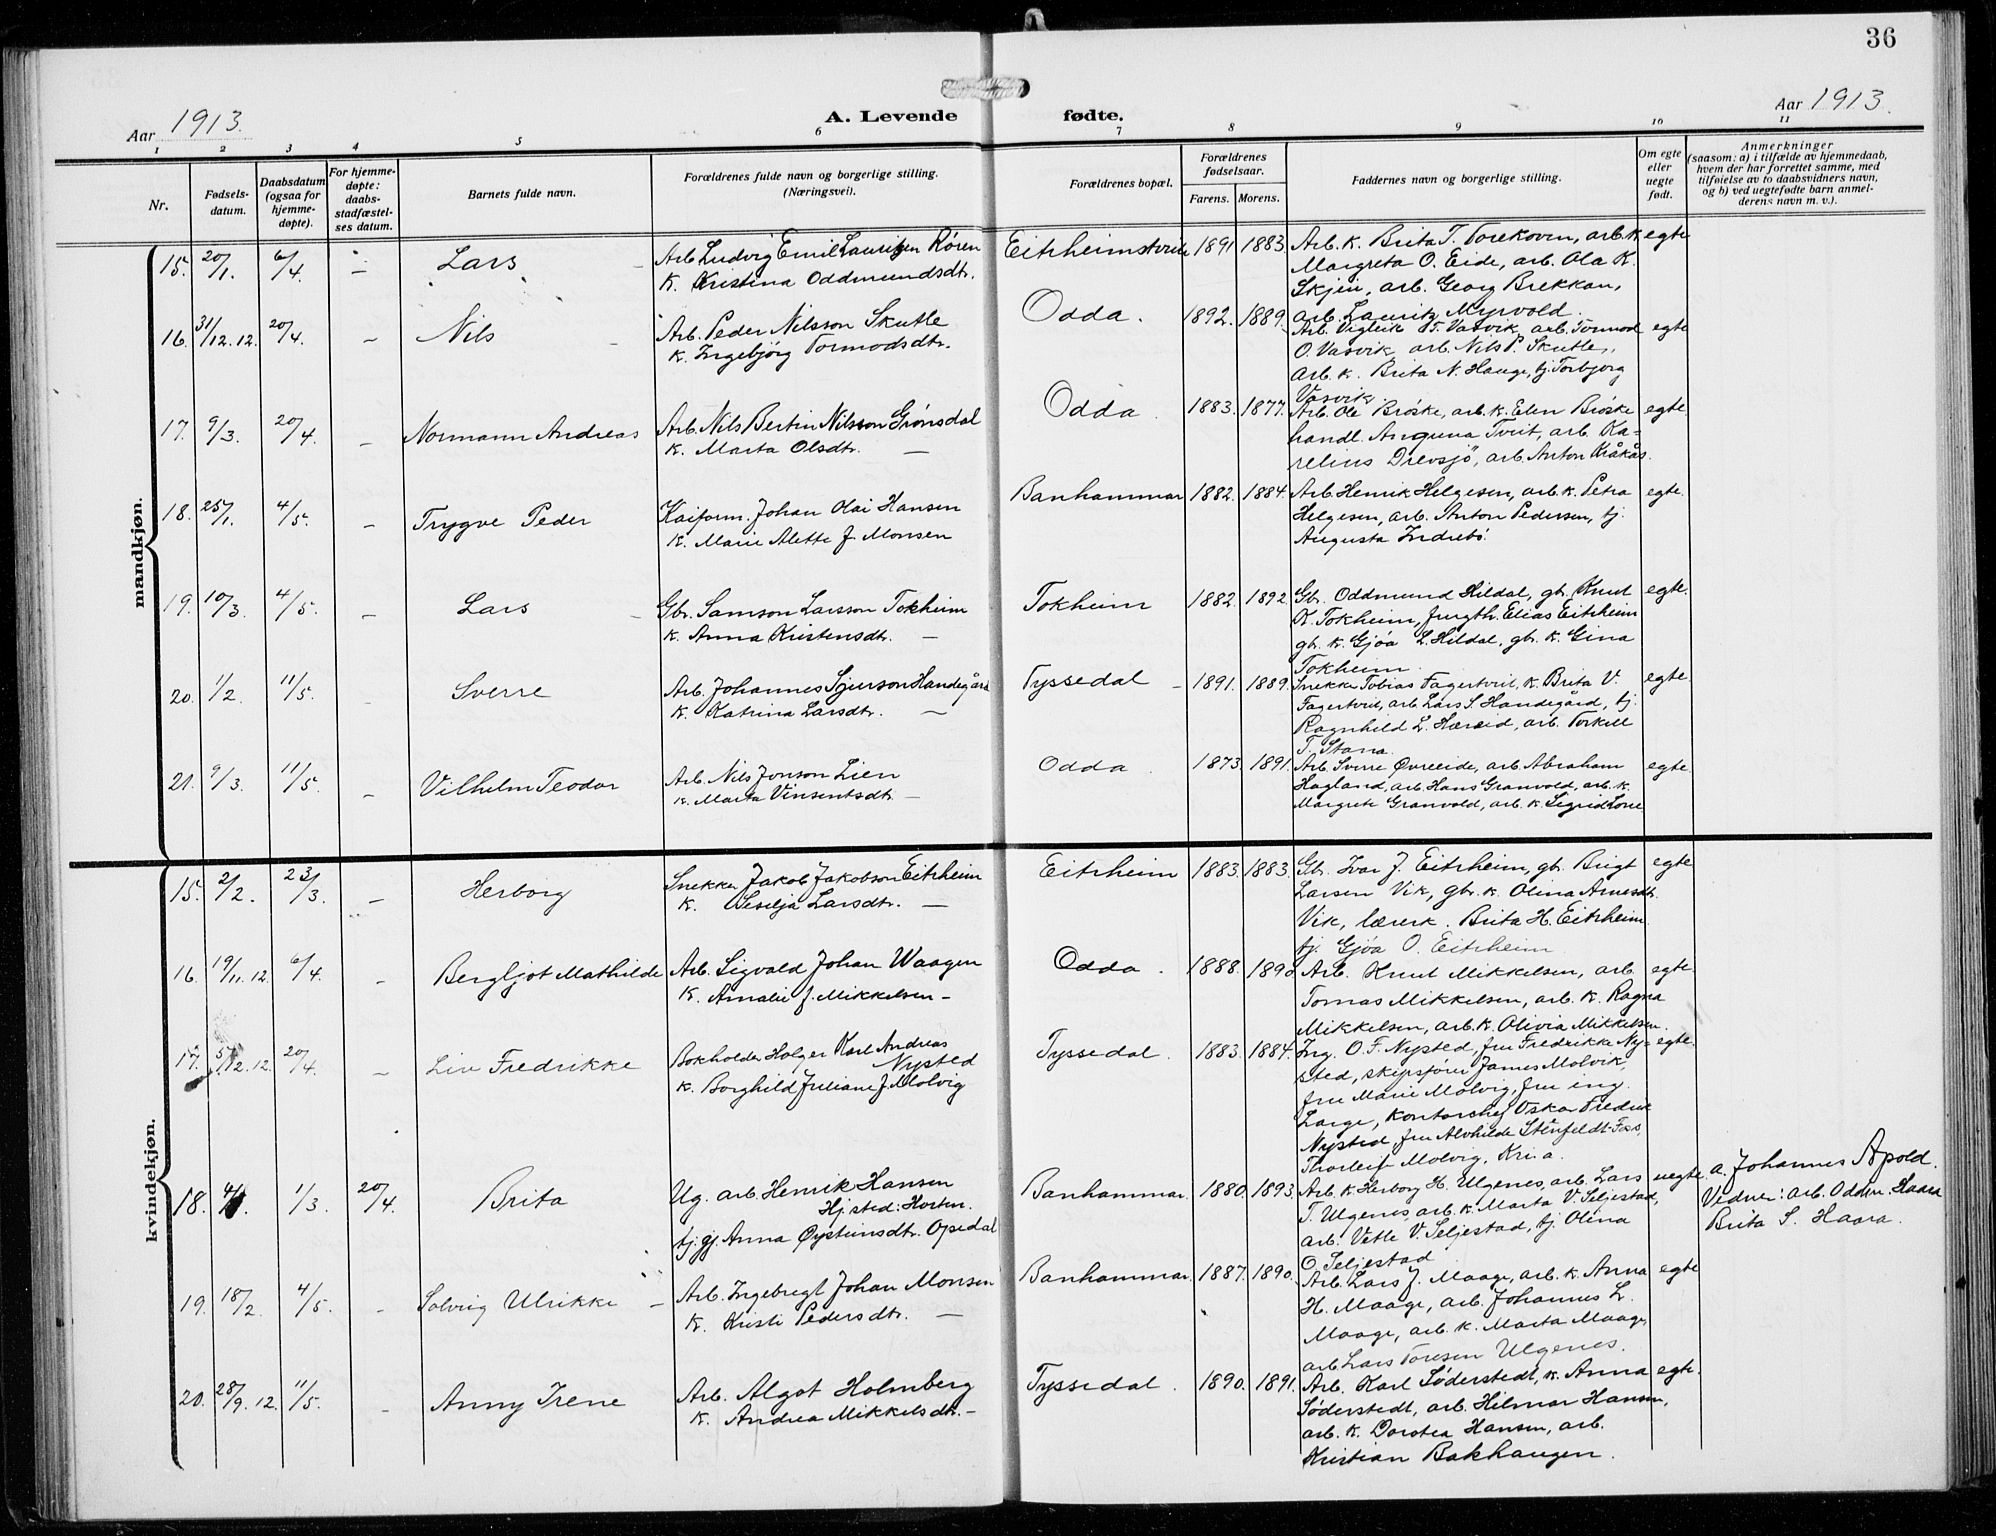 36
Aar 1913.
A. Levende fødte.
Aar 1913.
1 2 3 4 5 6 7 8 9 10 11
Nr.
Fødsels-
datum.
Daabsdatum
(ogsaa for
hjemme-
døpte).
For hjemme-
døpte:
daabs-
stadfæstel-
ses datum.
Barnets fulde navn.
Forældrenes fulde navn og borgerlige stilling.
(Næringsvei).
Forældrenes bopæl.
Forældrenes
fødselsaar.
Farens. Morens.
Faddernes navn og borgerlige stilling.
Om egte
eller
uegte
født.
Anmerkninger
(saasom: a) i tilfælde av hjemmedaab,
hvem der har forrettet samme, med
tilføielse av to daabsvidners navn,
og b) ved uegtefødte barn anmel-
derens navn m. v.).
mandkjøn.
15. 20/1. 6/4. – Lars
Arb. Ludvig Emil Lauritzen Røren
K. Kristina Oddmundsdtr.
Eitrheimstveit 1891 1883.
Arb. K. Brita T. Torekoven, arb. K.
Margreta O. Eide, arb. Ola K.
Skjei, arb. Georg Brekkan,
arb. Lauritz Myrvold.
egte
16. 31/12.12. 20/4. – Nils
Arb. Peder Nilsson Skutle
K. Ingebjørg Tormodsdtr.
Odda. 1892. 1889.
Arb. Vigleik T. Vasvik, arb. Tormod
O. Vasvik, arb. Nils P. Skutle,
Arb. K. Brita N. Hauge, tj. Torbjorg
Vasvik.
egte
17. 9/3. 20/4. – Normann Andreas
Arb. Nils Bertin Nilsson Grønsdal
K. Marta Olsdtr. –
Odda. 1883. 1877.
Arb. Ole Brøske, arb. K. Elen Brøske
handl. Anguna Tveit, arb. Ka-
relius Drevsjö, arb. Anton Kråkås.
egte.
18. 25/1. 4/5. – Trygve Peder
Kaiform. Johan Olai Hansen
K. Marie Alette J. Monsen
Banhammar 1882. 1884.
Arb. Henrik Helgesen, arb. K. Petra
Helgesen, arb. Anton Pedersen, tj.
Augusta Indrebö.
egte.
19. 10/3. 4/5. – Lars
Gbr. Samson Larsson Tokheim
K. Anna Kristensdtr. –
Tokheim 1882. 1892
Gbr. Oddmund Hildal, gbr. Knut
K. Tokheim, Jungth. Elias Eitrheim
gbr. K. Gjøa L. Hildal, gbr. K. Gina
Tokheim.
egte.
20. 1/2. 11/5. – Sverre
Arb. Johannes Sjurson Handegård
K. Katrina Larsdtr. –
Tyssedal – 1891. 1889.
Snekker Tobias Fagertveit, K. Brita V.
Fagertveit, arb. Lars S. Handegård, tj.
Ragnhild L. Hereid, arb. Torkell
T. Stana.
egte.
21. 9/3. 11/5. – Vilhelm Teodor
Arb. Nils Jonson Lien
K. Marta Vinsentsdtr. –
Odda. 1873. 1891.
Arb. Sverre Øvreeide, arb. Abraham
Hagland, arb. Hans Granvold, arb. K.
Margrete Granvold, arb. K. Sigrid Lone
egte.
kvindekjøn.
15. 2/2. 23/3. – Herborg
Snekker Jakob Jakobson Eitrheim
K. Seselja Larsdtr. –
Eitrheim 1883. 1883.
Gbr. Ivar J. Eitrheim, gbr. Brigt
Larsen Vik, gbr. K. Olina Arnesdtr.
Vik, lærerk. Brita H. Eitrheim
tj. Gjøa O. Eitrheim
egte
16. 19/11.12. 6/4. – Bergljot Mathilde
Arb. Sigvald Johan Waagen
K. Amalie J. Mikkelsen –
Odda. 1888. 1890.
Arb. Knut Mikkelsen, arb.
Tomas Mikkelsen, arb. K. Ragna
Mikkelsen, arb. K. Olivia Mikkelsen.
egte.
17. 5/12.12. 20/4. – Liv Fredrikke
Bokholder Holger Karl Andreas
Nysted
K. Borghild Juliane J. Molvig
Tyssedal. 1883. 1884.
Ing. O. F. Nysted, fru Fredrikke Ny-
sted, skipsfører James Molvik,
fru Marie Molvig, fru ing.
Lange, Kontorchef Oskar Fredrik
Nysted, fru Alvhilde Stenfeldt-Foss,
Thorleif Molvig, Kr.a.
egte.
18. 4/1. 1/3. 20/4. Brita
Ug. arb. Henrik Hansen
Hj.sted: Horten.
tj.gj. Anna Øysteinsdtr. Opedal
Banhammar. 1880. 1893.
Arb. K. Herborg H. Ulgenes, arb. Lars
T. Ulgenes, arb. K. Marta V. Seljestad,
arb. Vetle V. Seljestad, tj. Olina
O. Seljestad
uegte
a. Johannes Apold.
Vidner: arb. Oddm. Haara
Brita S. Haara.
19. 18/2. 4/5. – Solveig Ulrikke –
Arb. Ingebregt Johan Monsen
K. Kristi Pedersdtr. –
Banhammar. 1887. 1890.
Arb. Lars J. Maage, arb. K. Anna
H. Maage, arb. Johannes L.
Maage, arb. K. Marta Maage,
arb. Lars Toresen Ulgenes.
egte
20. 28/9.12. 11/5. – Anny Irene
Arb. Algot Holmberg
K. Andrea Mikkelsdtr. –
Tyssedal. 1890. 1891.
Arb. Karl Søderstedt, K. Anna
Søderstedt, arb. Hilmar Hansen,
arb. K. Dorotea Hansen, arb.
Kristian Bakhaugen.
egte.